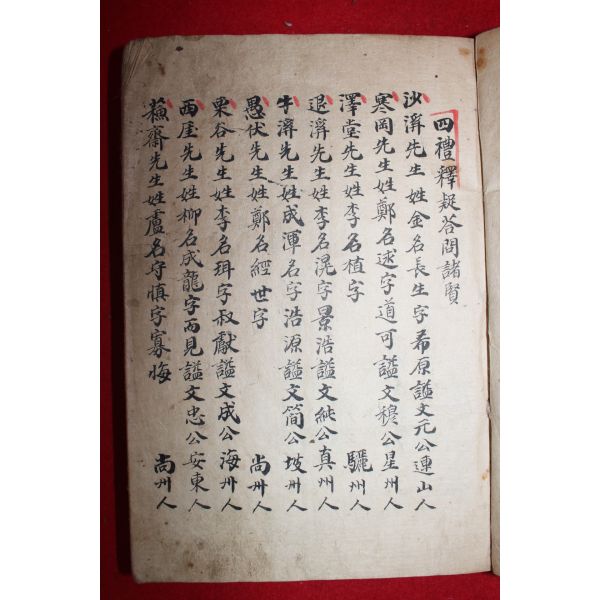 四禮釋疑答問諸賢
沙溪先生 姓金名長生字希原謚文元公連山人
寒岡先生姓鄭名逑字道可謚文穆公星州人
澤堂先生姓李名植字 驪州人
退溪先生姓李名滉字景浩謚文純公真州人
牛溪先生姓成渾名字浩源謚文简公坡州人
愚伏先生姓鄭名經世字 尙州人
栗谷先生姓李名珥字叔獻謚文成公海州人
西厓先生姓柳名成龍字而見謚文忠公安東人
蘓齋先生姓盧名守慎字寡悔 尚州人